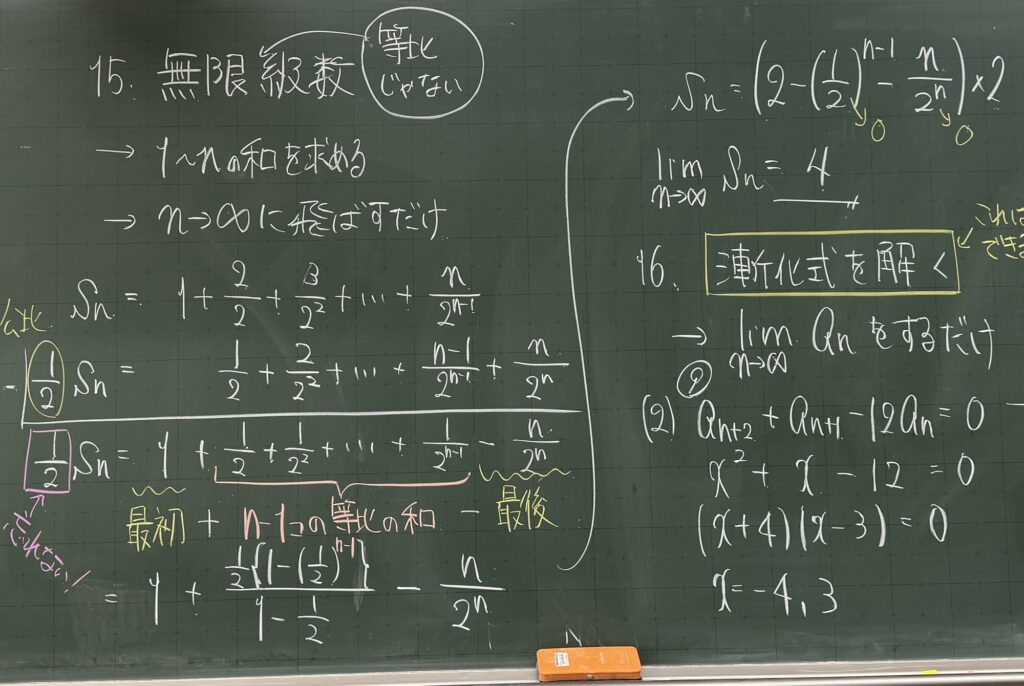 15. 無限級数
等比
じゃない
→ 1〜nの和を求める
→ n→∞に飛ばすだけ
Sn = 1 + 2/2 + 3/2² + … + n/2ⁿ⁻¹
公比
- 1/2 Sn = 1/2 + 2/2² + … + n-1/2ⁿ⁻¹ + n/2ⁿ
1/2 Sn = 1 + 1/2 + 1/2² + … + 1/2ⁿ⁻¹ - n/2ⁿ
最初 + n-1コの等比の和 - 最後
= 1 + 1/2{1-(1/2)ⁿ⁻¹}/1-1/2 - n/2ⁿ
Sn = (2 - (1/2)ⁿ⁻¹ - n/2ⁿ) × 2
0 0
lim n→∞ Sn = 4
これは
でき
16. 漸化式を解く
→ lim n→∞ an をするだけ
(2) an+2 + an+1 - 12an = 0
x² + x - 12 = 0
(x+4)(x-3) = 0
x = -4, 3